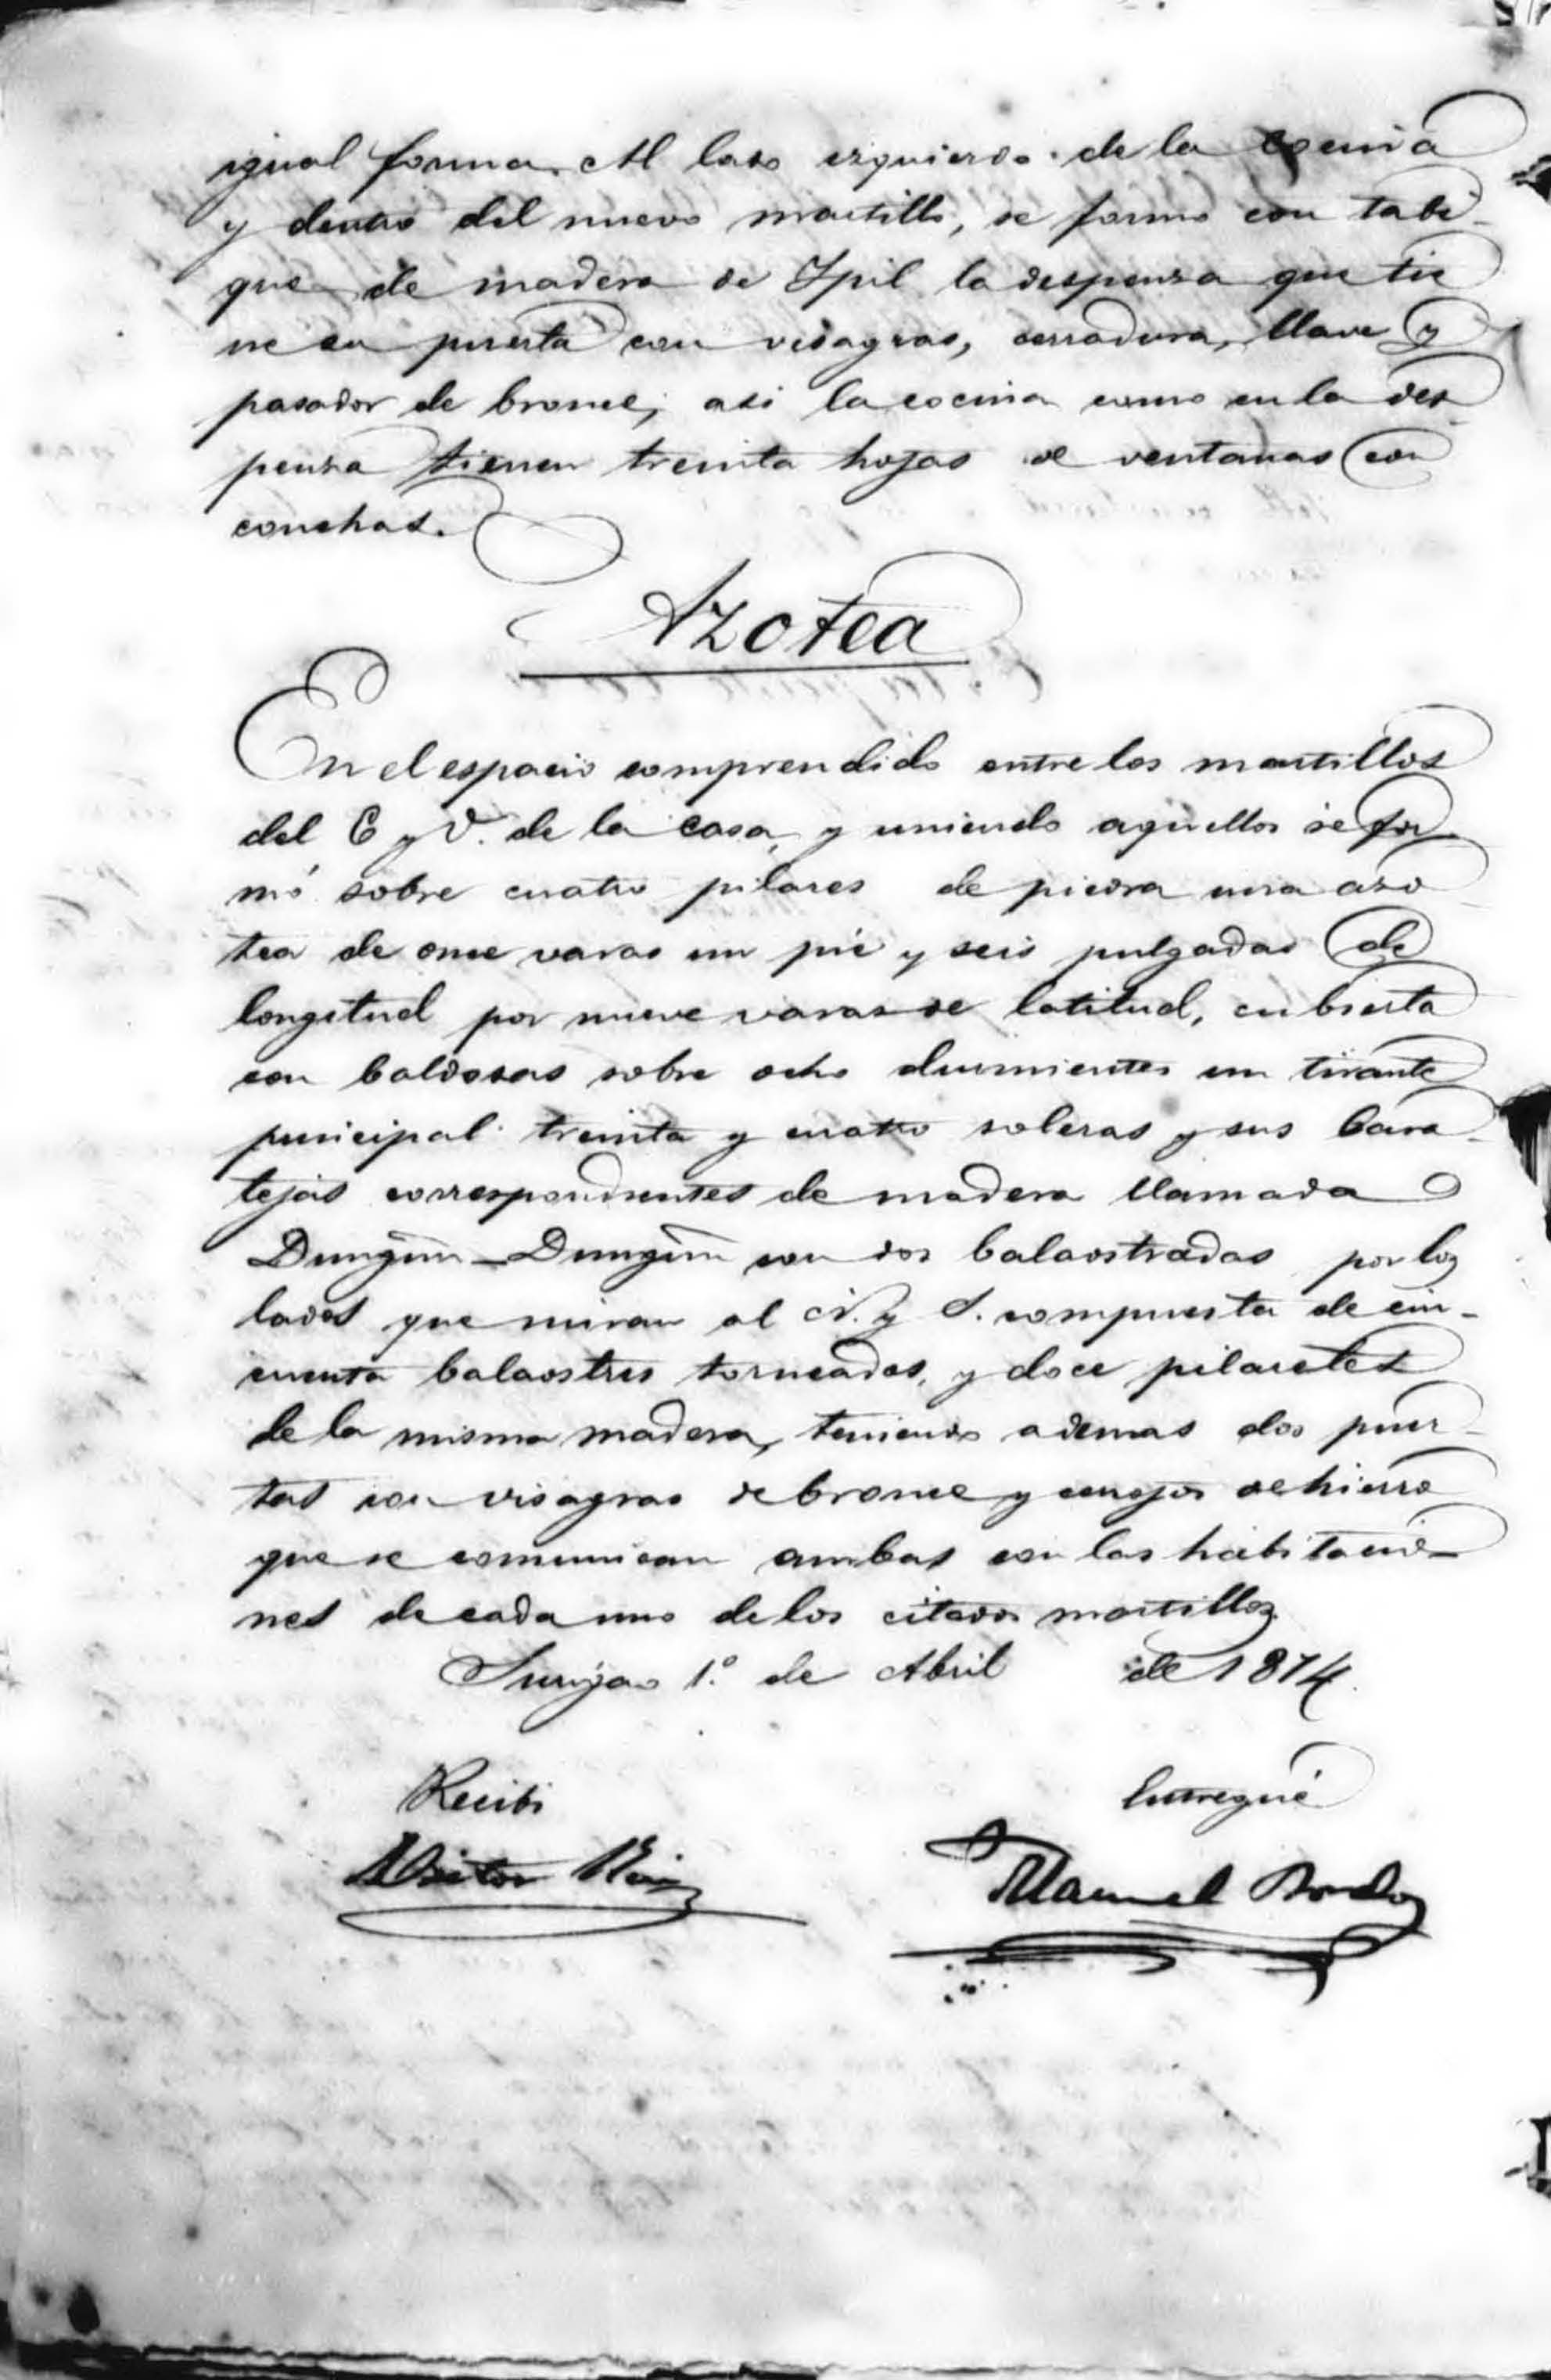 igual forma. Al lado izquierdo de la cocina
y dentro del nuevo martillo, se formó con tabi-
que de madera de Ypil la despensa que tie
ne su puerta con visagras, cerradura, llave y
pasador de bronce; asi la cocina como en la des
pensa tienen treinta hojas de ventanas con
conchas.
Azotea
En el espacio comprendido entre los martillos
del E y O. de la casa, y uniendo aquellos se for
mó sobre cuatro pilares de piedra una azo
tea de once varas un pie y seis pulgadas de
longitud por nueve varas de latitud, cubierta
con baldosas sobre ocho durmientes un tirante
principal treinta y cuatro soleras y sus bara-
tejas correspondientes de madera llamada
Dungun-Dungun con dos balaostradas por los
lados que miran al N. y S. compuesta de cin-
cuenta balaostres torneados, y doce pilaretes
de la misma madera, teniendo ademas dos puer-
tas con visagras de bronce y cerrojos de hierro
que se comunican ambas con las habitacio-
nes de cada uno de los citados martillos.
Surigao 1.º de Abril de 1874.
Recibi Entregué
Manuel